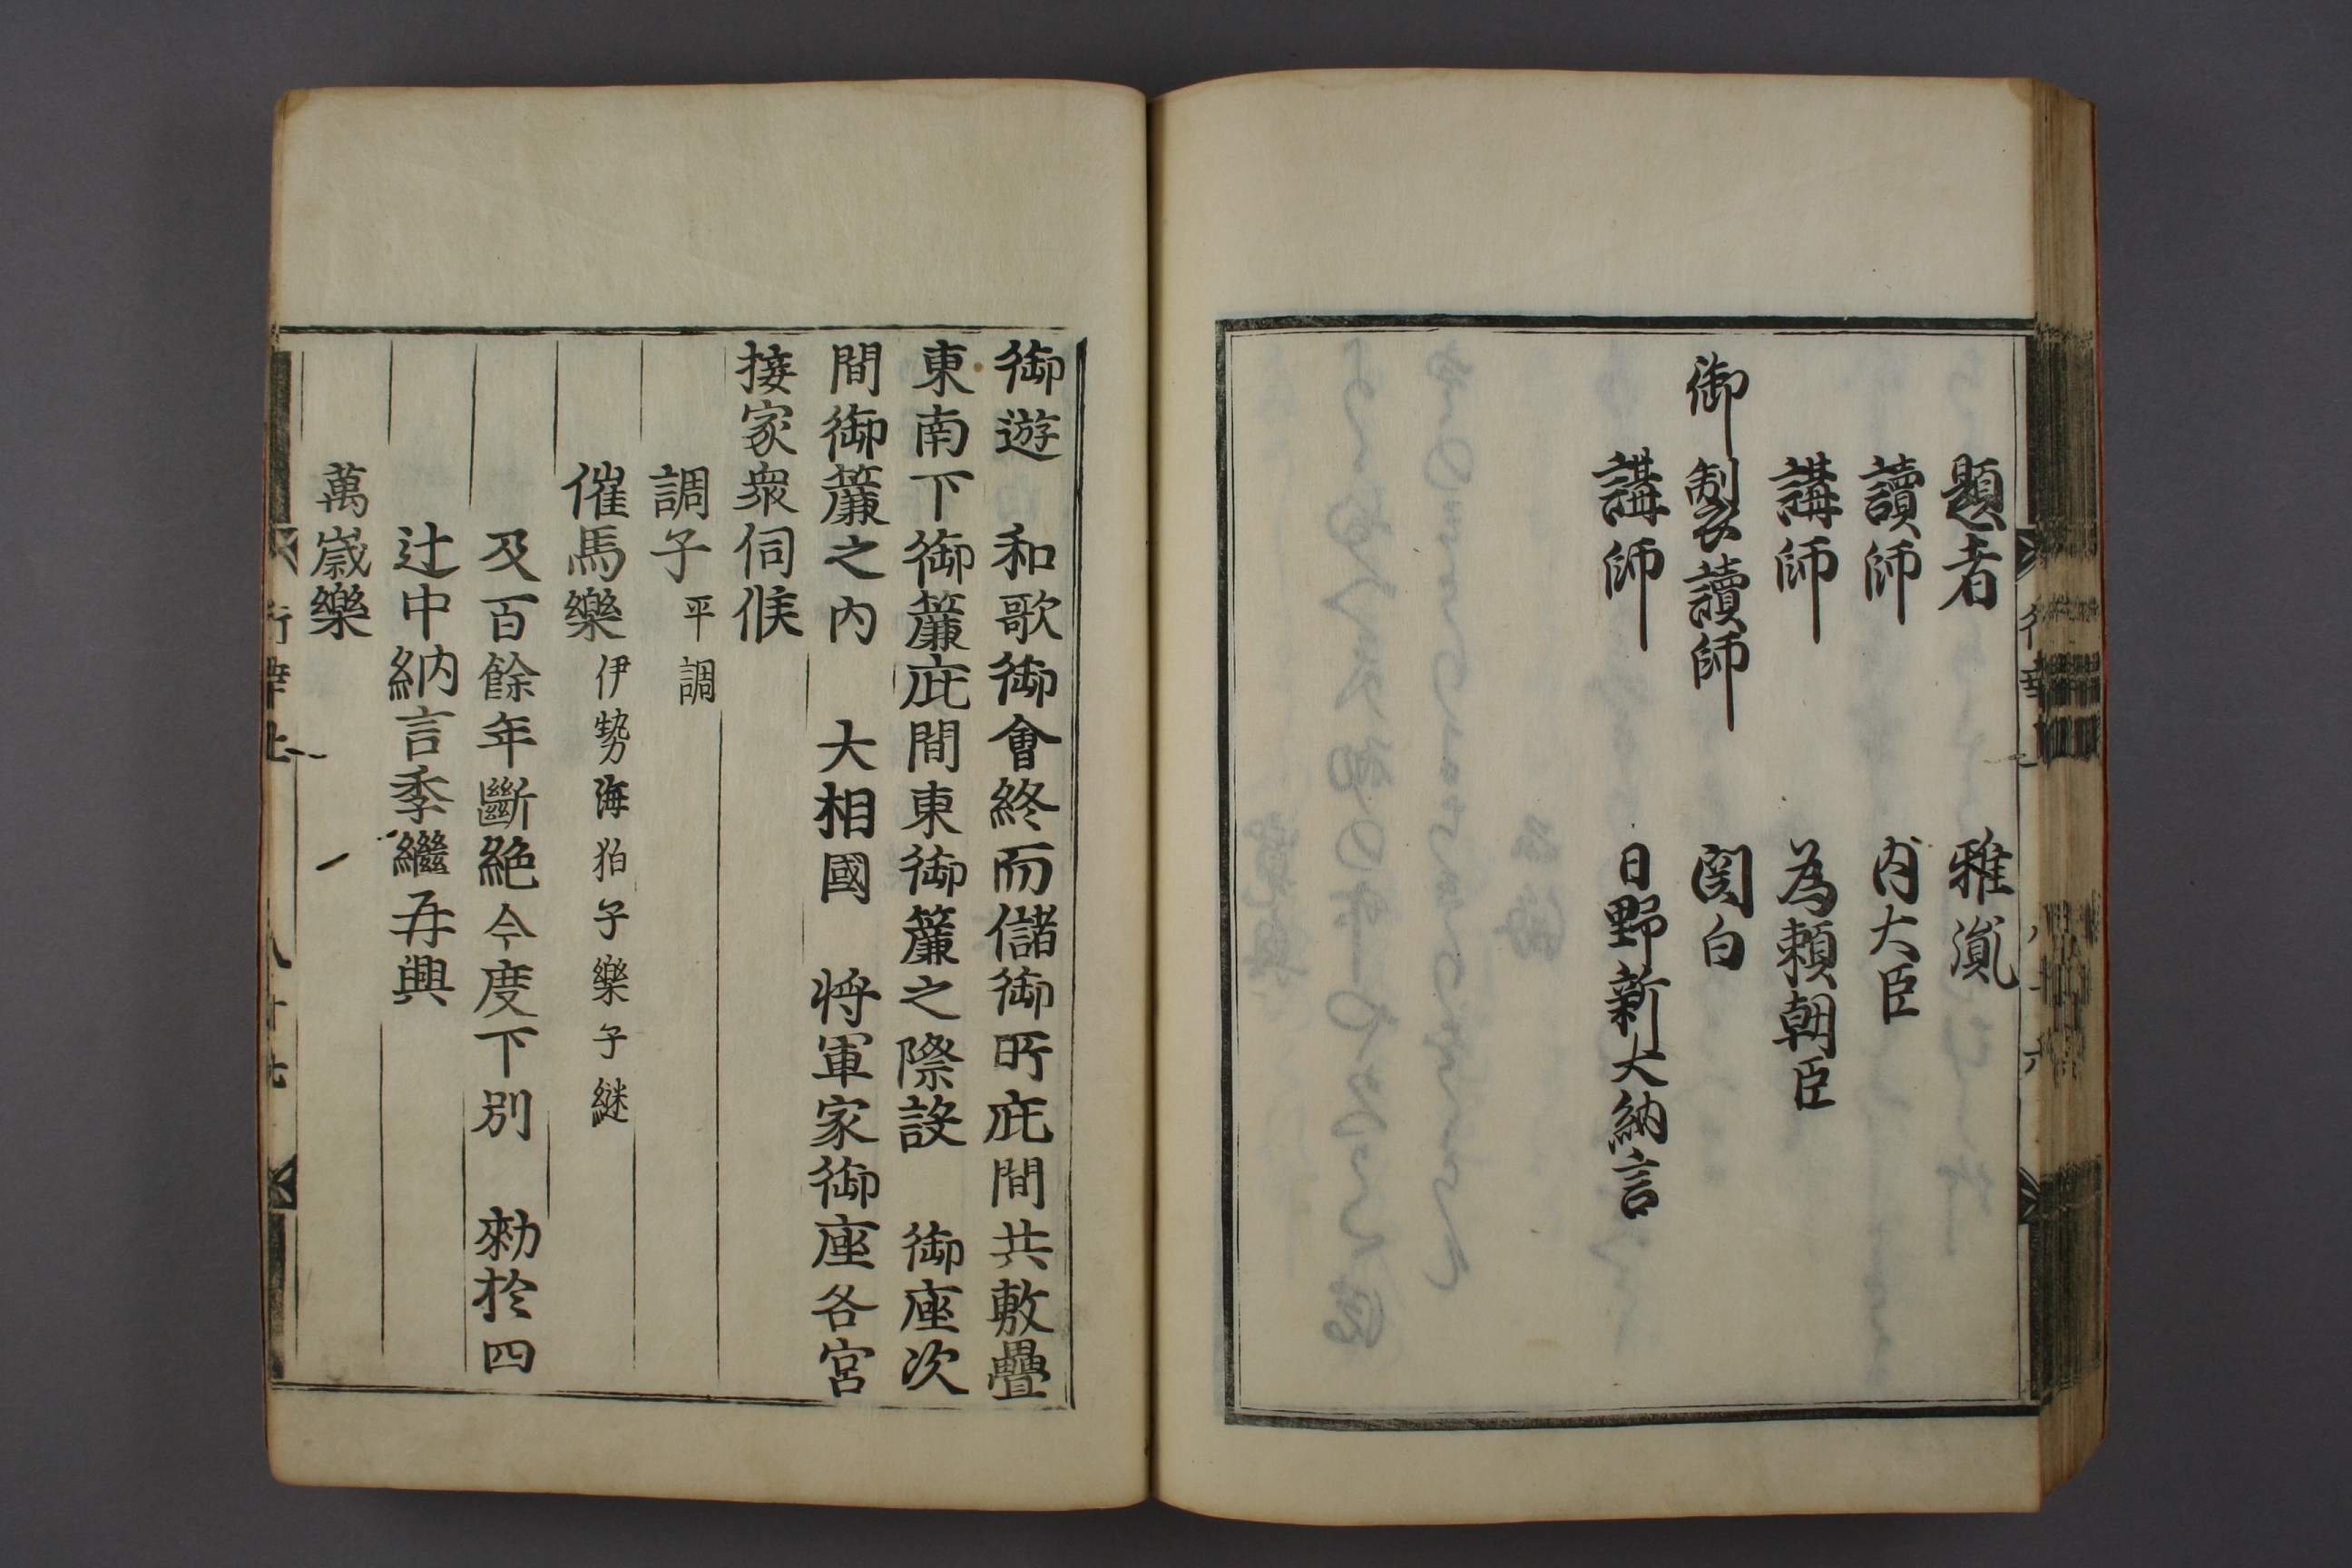 題者 雅胤
讀師 内大臣
講師 為頼朝臣
御製讀師 関白
講師 日野新大納言
御遊 和歌御會終而儲御所庇間共敷疊
東南下御簾庇間東御簾之際設 御座次
間御簾之内 大相國 将軍家御座各宮
接家衆伺候
調子 平調
催馬樂 伊勢海 拍子樂子継
及百餘年斷絶今度下別 勅於四
辻中納言季繼再興
萬歳樂
行幸上 八十七